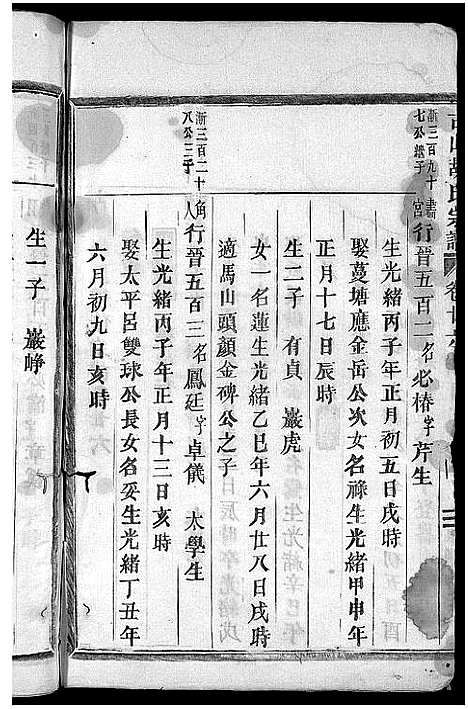 漸三百九十七公繼子
行晉五百二名必椿字芹生
生光緒丙子年正月初五日戌時
娶蔓塘應金岳公次女名祿生光緒甲申年
正月十七日辰時
生二子 有貞 巖虎
女一名蓮生光緒乙巳年六月廿八日戌時
適馬山頭顏金碑公之子
漸三百二十八公三子
行晉五百三名鳳廷字卓儀 太學生
生光緒丙子年正月十三日亥時
娶太平呂雙球公長女名妥生光緒丁丑年
六月初九日亥時
生一子 巖崢